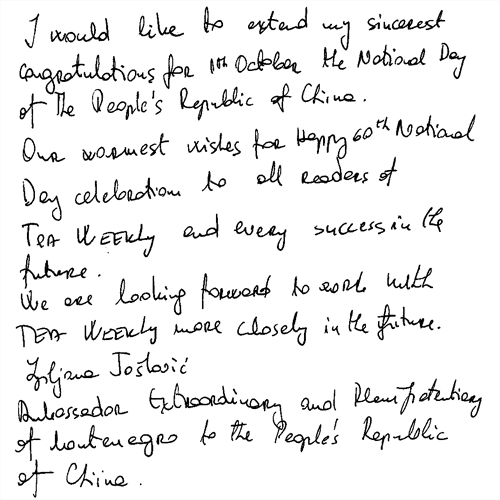 I would like to extend my sincerest
congratulations for 1th October the National Day
of the People's Republic of China.
Our warmest wishes for Happy 60th National
Day celebration to all readers of
TEA WEEKly and every success in the
future.
We are looking forward to work with
TEA WEEKLY more closely in the future.
Ljiljana Tošković
Ambassador Extraordinary and Plenipotentiary
of Montenegro to the People's Republic
of China.